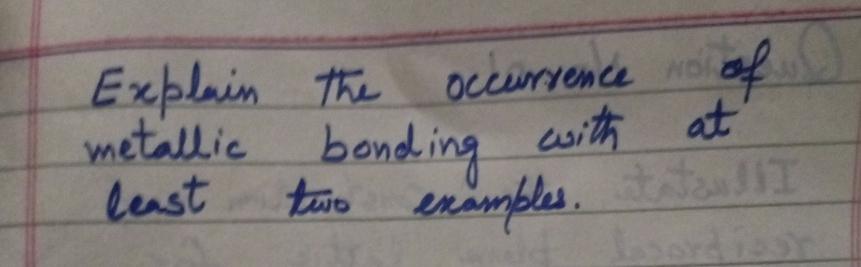 Explain the occurrence of
metallic bonding with at
least two examples.